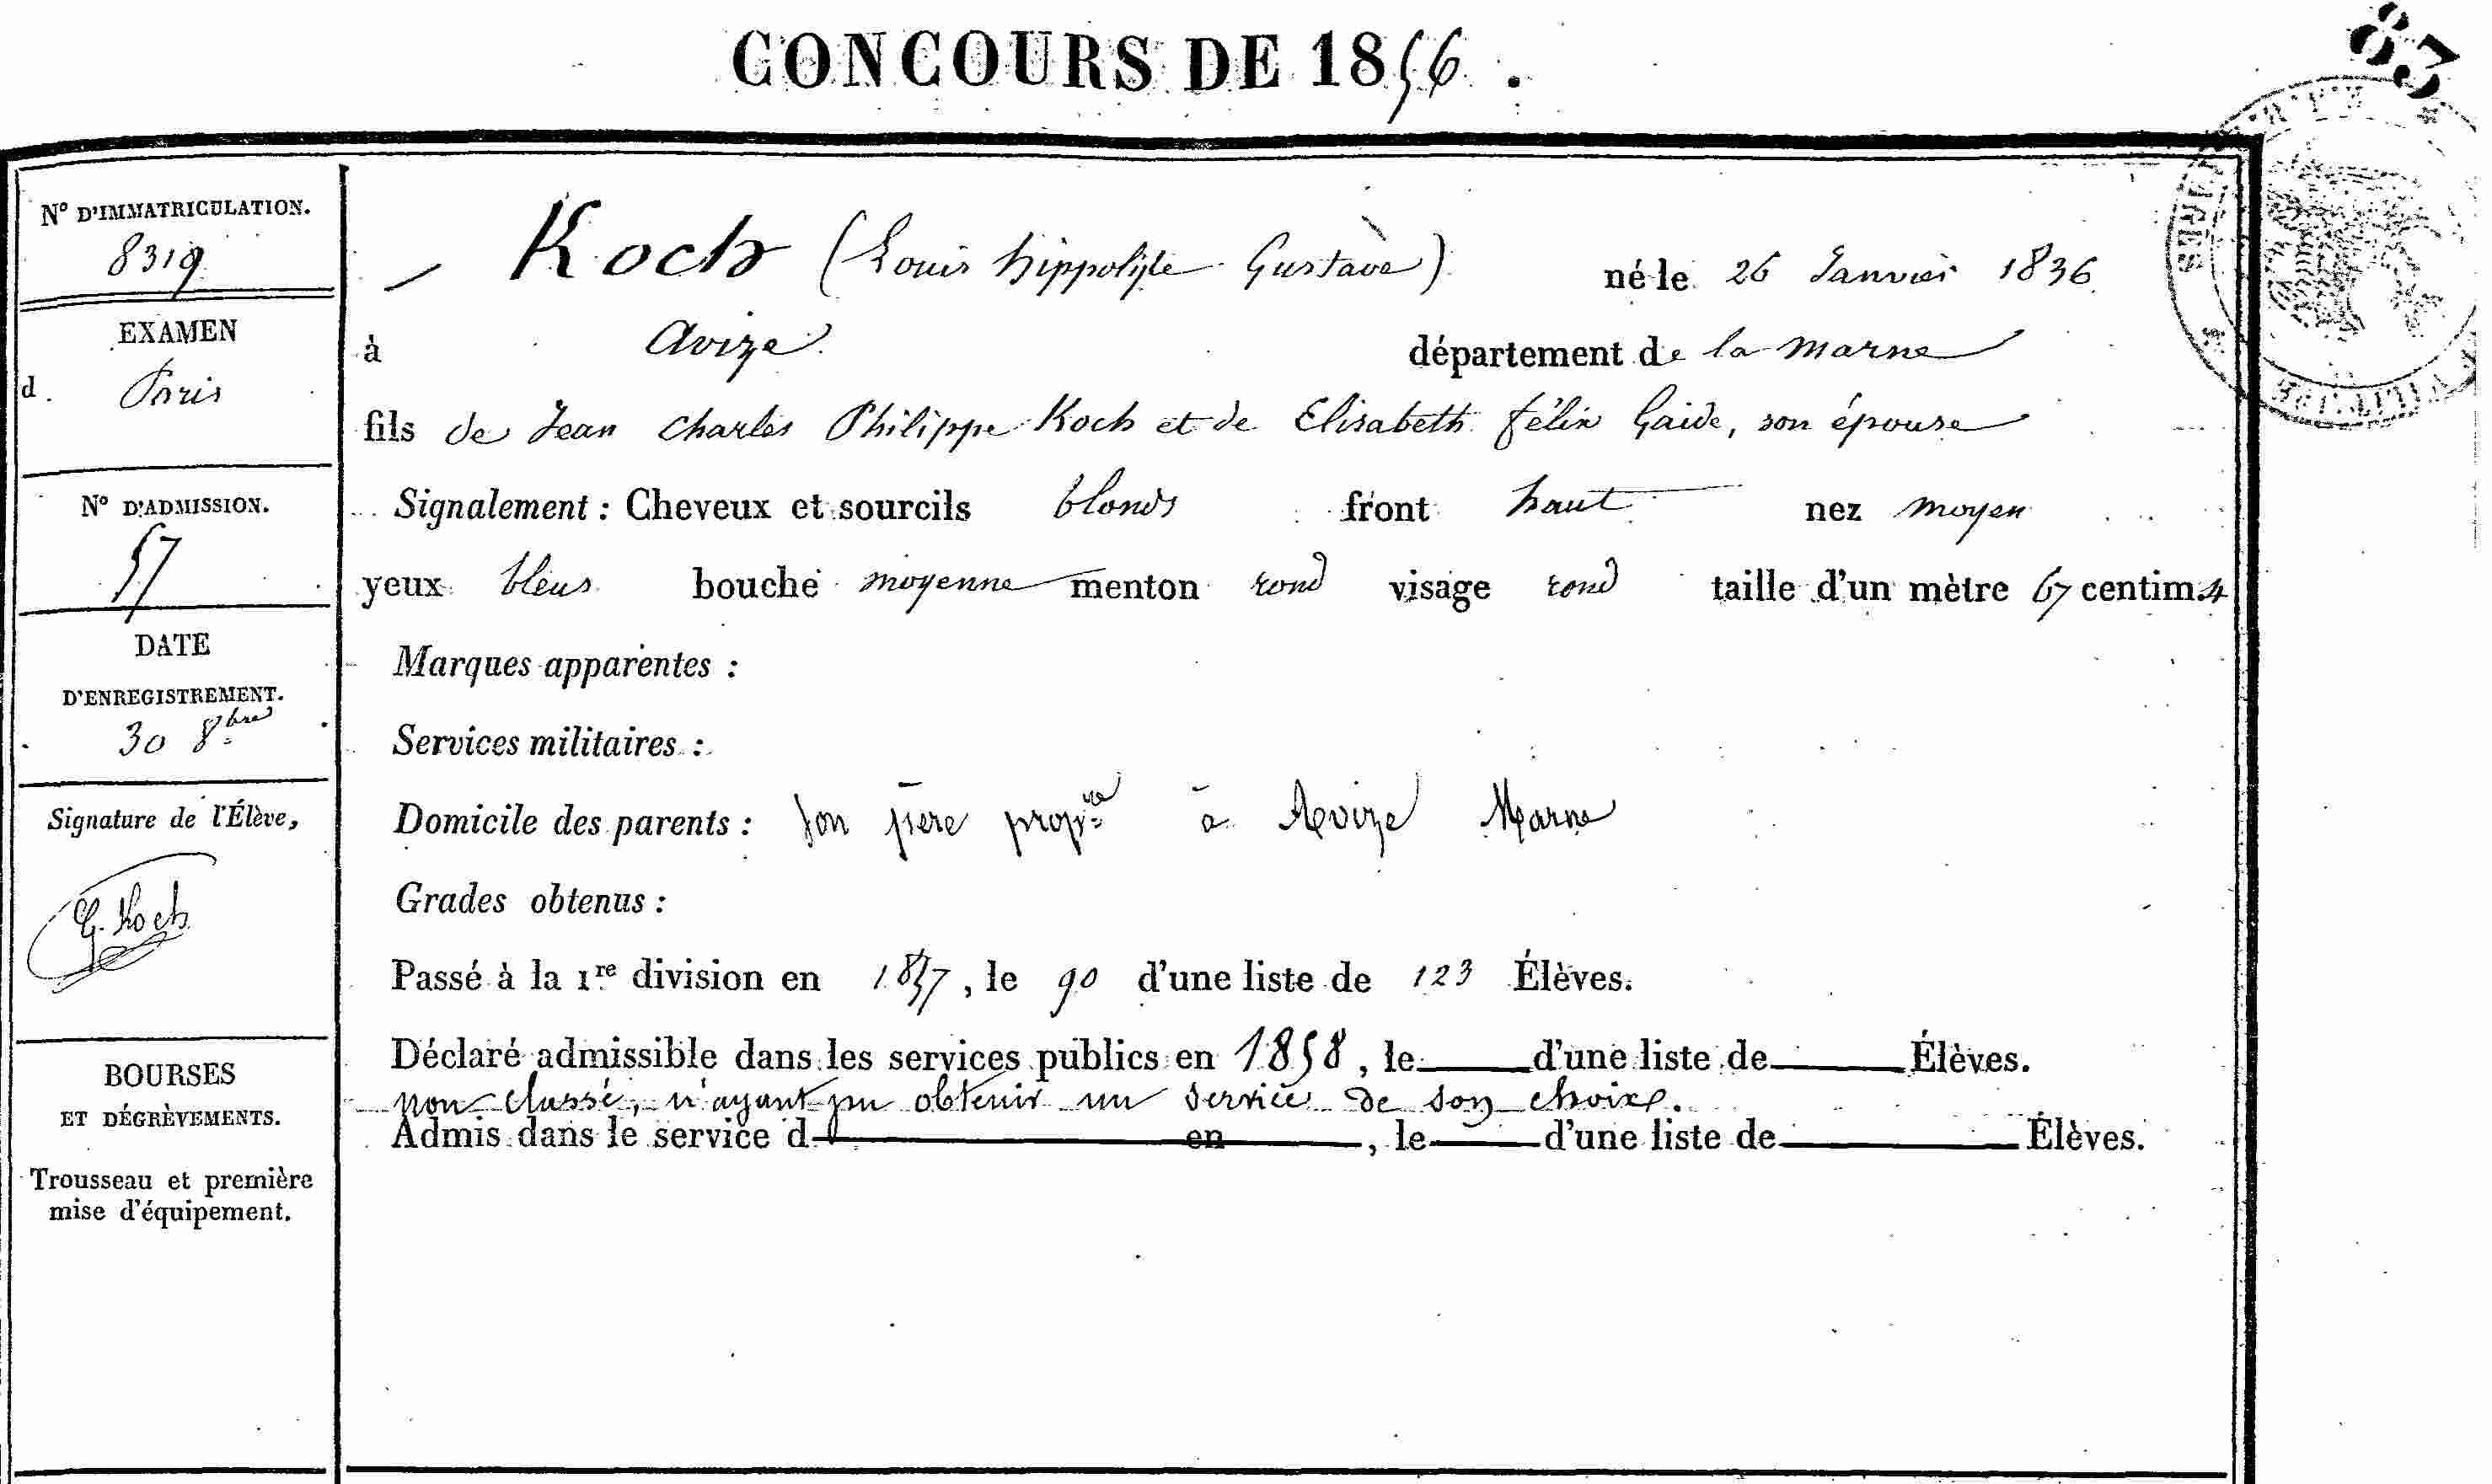 CONCOURS DE 1856.
83
N° D'IMMATRICULATION.
8319
EXAMEN
d. Paris
N° D'ADMISSION.
57
DATE
D'ENREGISTREMENT.
30 8bre
Signature de l'Élève,
G. Koch
BOURSES
ET DÉGRÈVEMENTS.
Trousseau et première
mise d'équipement.
Koch (Louis hippolyte Gustave) né le 26 Janvier 1836
à Avize département de la Marne
fils de Jean Charles Philippe Koch et de Elisabeth félix Gaide, son épouse
Signalement : Cheveux et sourcils blonds front haut nez moyen
yeux bleus bouche moyenne menton rond visage rond taille d'un mètre 67 centim. 4
Marques apparentes :
Services militaires :
Domicile des parents : Son père propre à Avize Marne
Grades obtenus :
Passé à la 1re division en 1857, le 90 d'une liste de 123 Élèves.
Déclaré admissible dans les services publics en 1858, le d'une liste de Élèves.
non classé, n'ayant pu obtenir un service de son choix.
Admis dans le service d en , le d'une liste de Élèves.